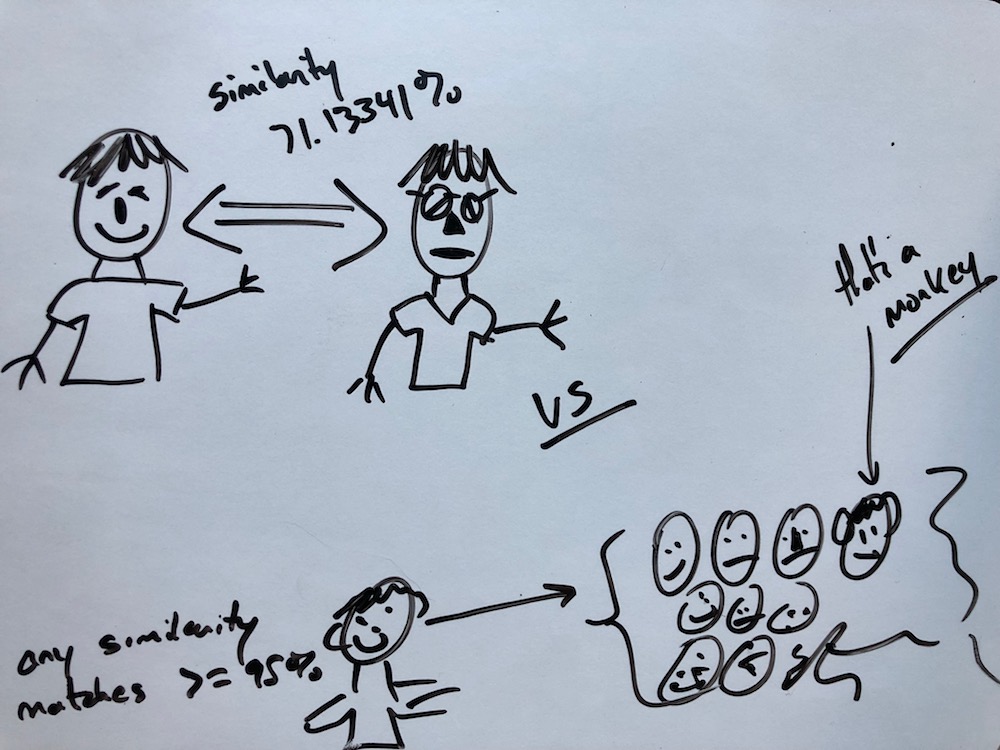 similarity
71.13341%
vs
that's a
monkey
any similarity
matches >= 95%